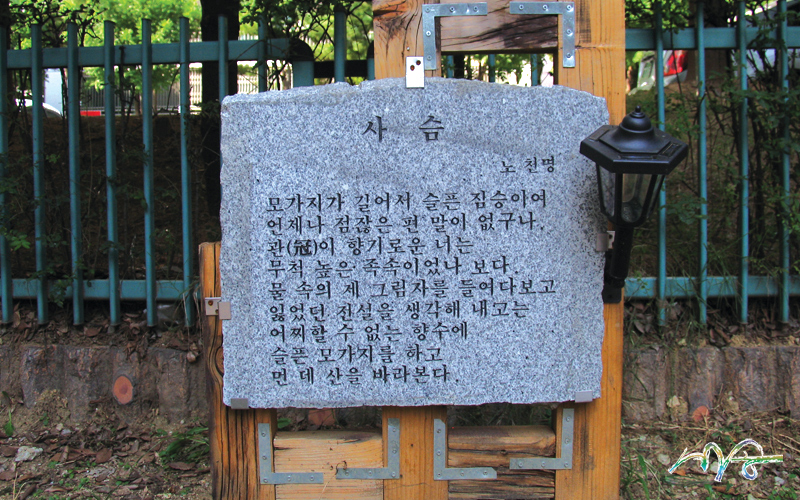 사 슴
노 천명
모가지가 길어서 슬픈 짐승이여
언제나 점잖은 편 말이 없구나.
관(冠)이 향기로운 너는
무척 높은 족속이었나 보다.
물 속의 제 그림자를 들여다보고
잃었던 전설을 생각해 내고는
어찌할 수 없는 향수에
슬픈 모가지를 하고
먼 데 산을 바라본다.